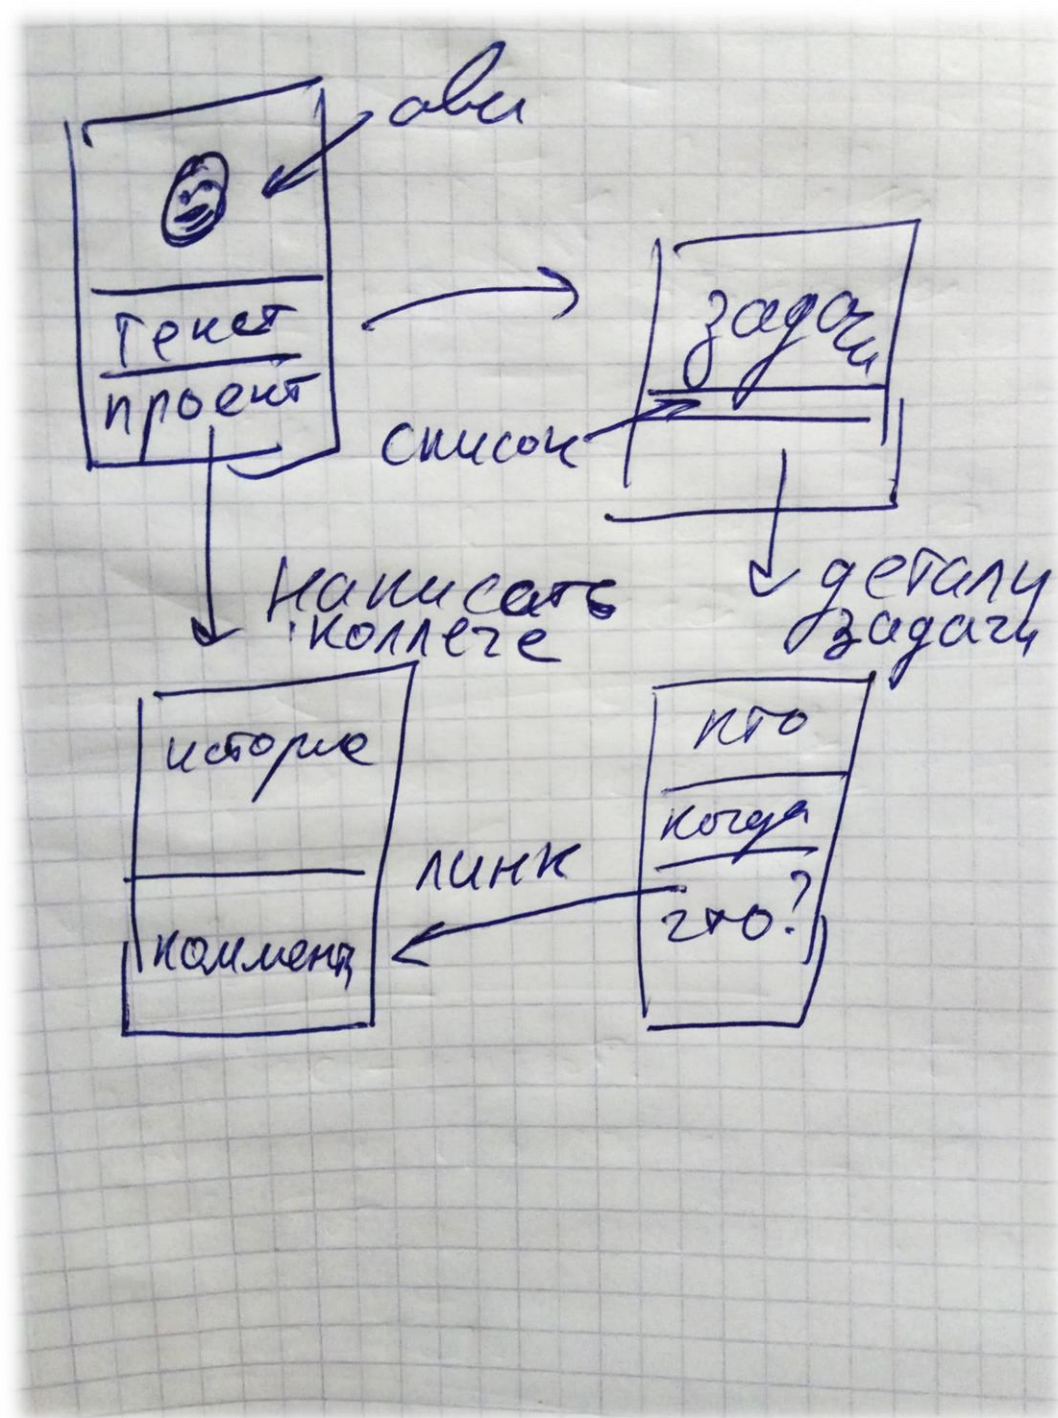 ави
текст
проект
задачи
список
написать
коллеге
детали
задачи
история
коммент
линк
кто
когда
что?